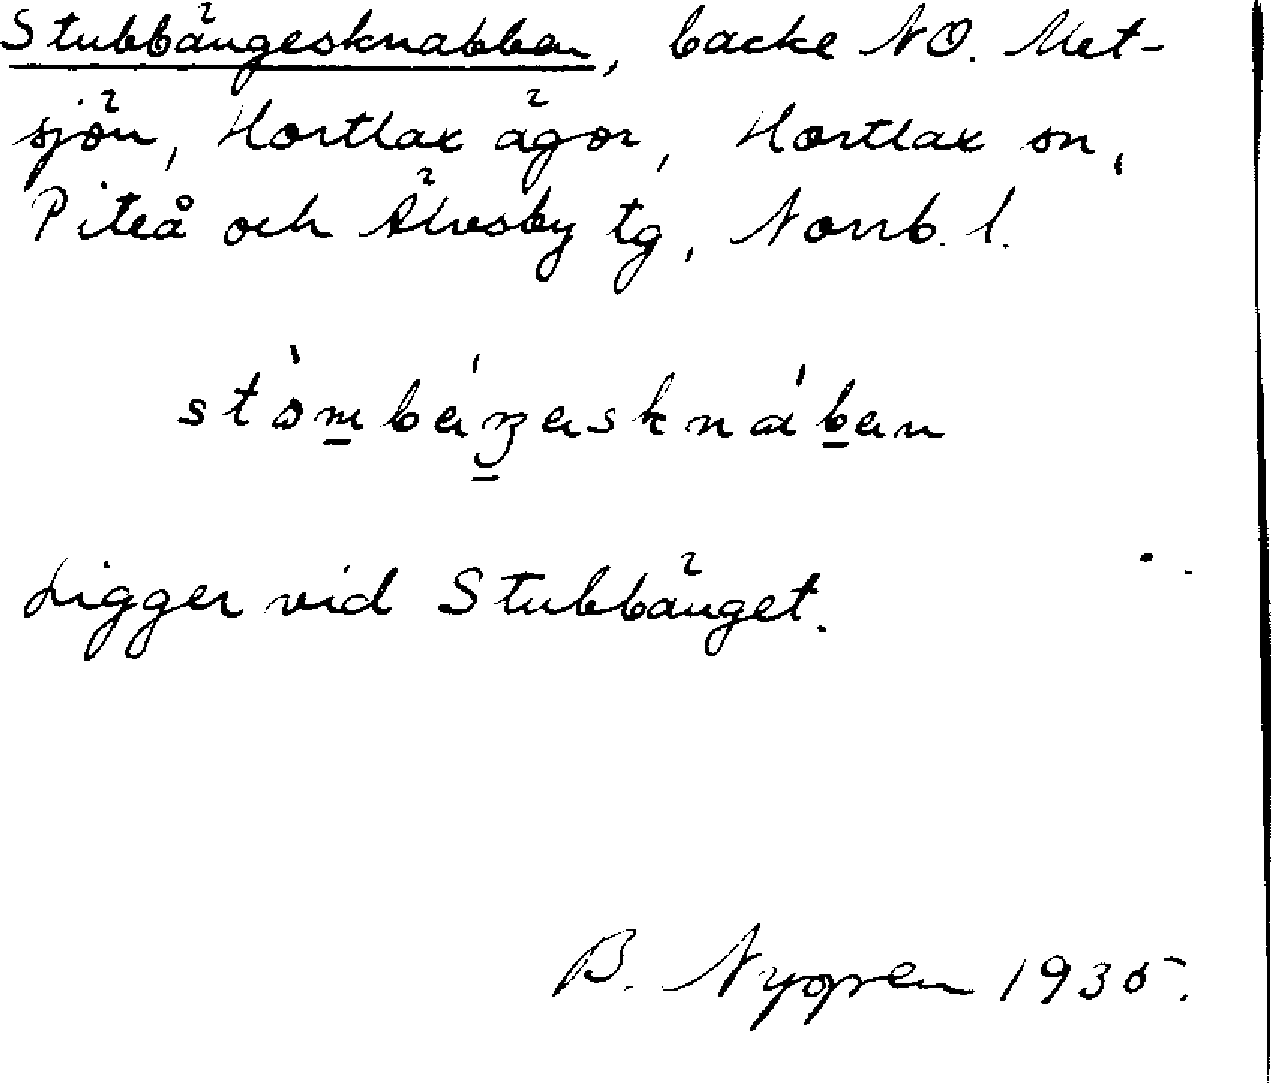 Stubbängesknabben, backe NO. Met-
sjön, Hortlax ägor, Hortlax sn,
Piteå och Älvsby tg, Norrb. l.
Ligger vid Stubbänget.
B. Nygren 1935.